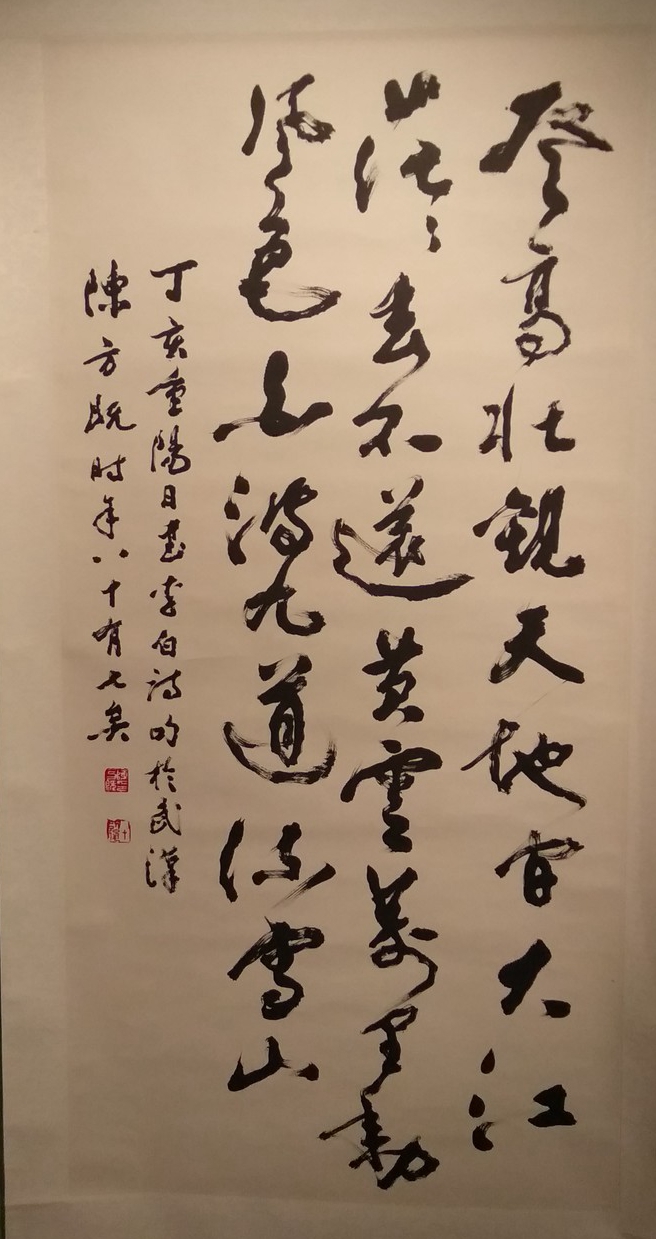 登高壮觀天地间大江
茫茫去不還黄雲萬里動
風色白波九道流雪山
丁亥重陽日書李白詩句於武漢
陳方既时年八十有七矣